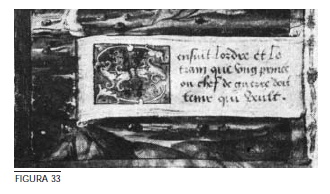 ensuit lordre et le
train que ung prince
ou chef de guerre doit
tenir qui veult.
FIGURA 33